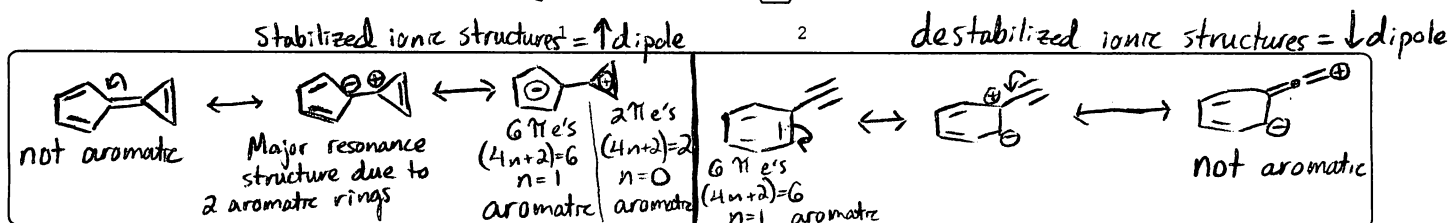 Stabilized ionic structures = ↑dipole
2
destabilized ionic structures = ↓dipole
not aromatic
Major resonance
structure due to
2 aromatic rings
6 π e's
(4n+2)=6
n=1
aromatic
2π e's
(4n+2)=2
n=0
aromatic
6 π e's
(4n+2)=6
n=1 aromatic
not aromatic